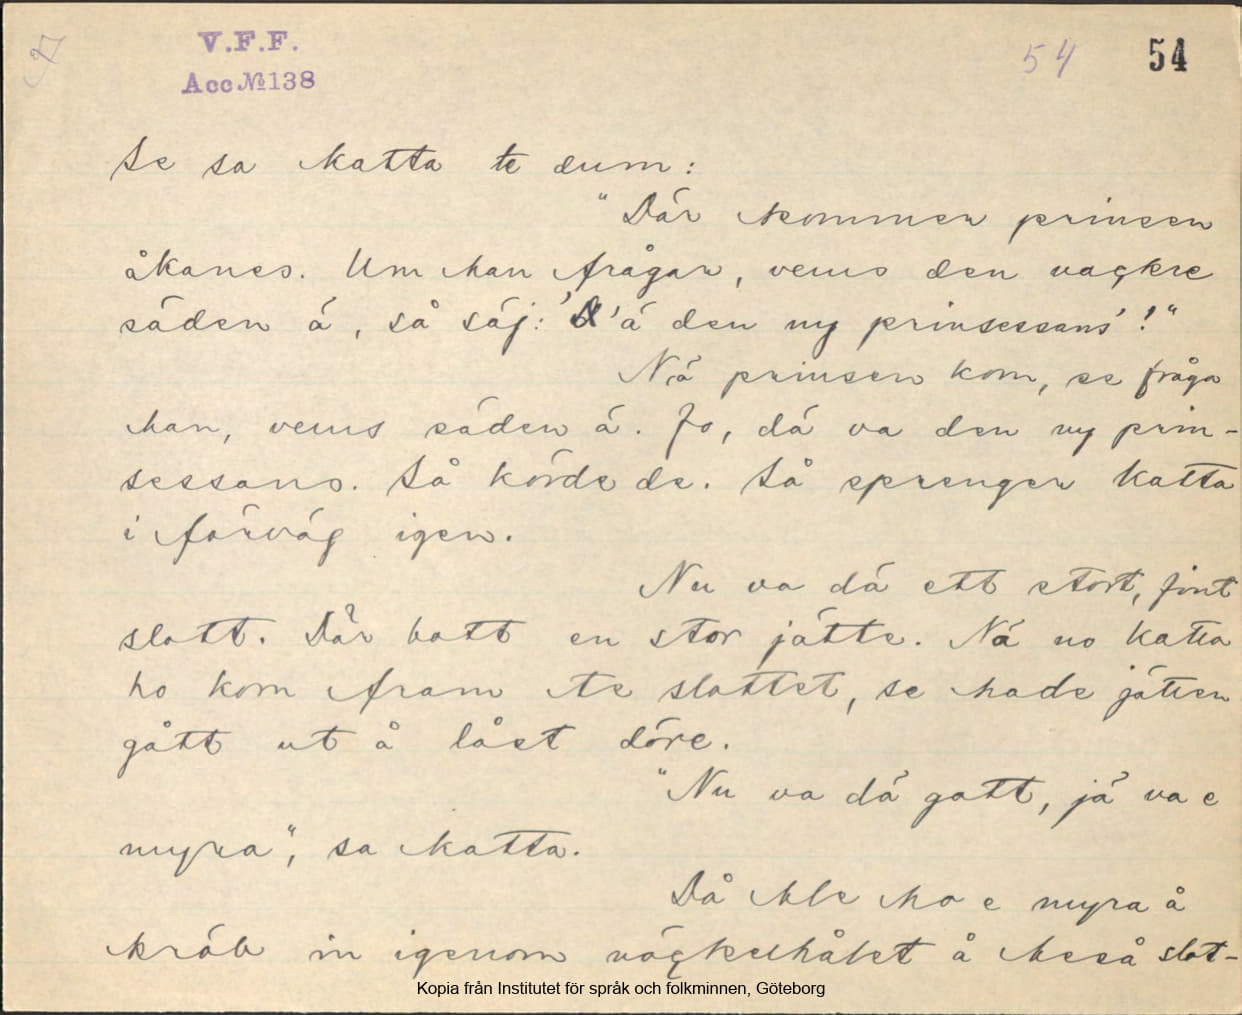 V.F.F.
Acc № 138
54 54
Se sa katta te dum:
"Där kommer prinsen
åkanes. Um han frågar, vems den vackre
säden ä, så säj: 'D'ä den ny prinsessans'!"
Nä prinsen kom, se fråga
han, vems säden ä. Jo, dä va den ny prin-
sessans. Så körde de. Så sprenger katta
i förväg igen.
Nu va dä ett stort, fint
slott. Där bott en stor jätte. Nä no katta
ho kom fram te slottet, se hade jätten
gått ut å låst döre.
"Nu va dä gott, jä va e
myra", sa katta.
Då ble ho e myra å
kröb in igenom nöckelhålet å beså slot-
Kopia från Institutet för språk och folkminnen, Göteborg